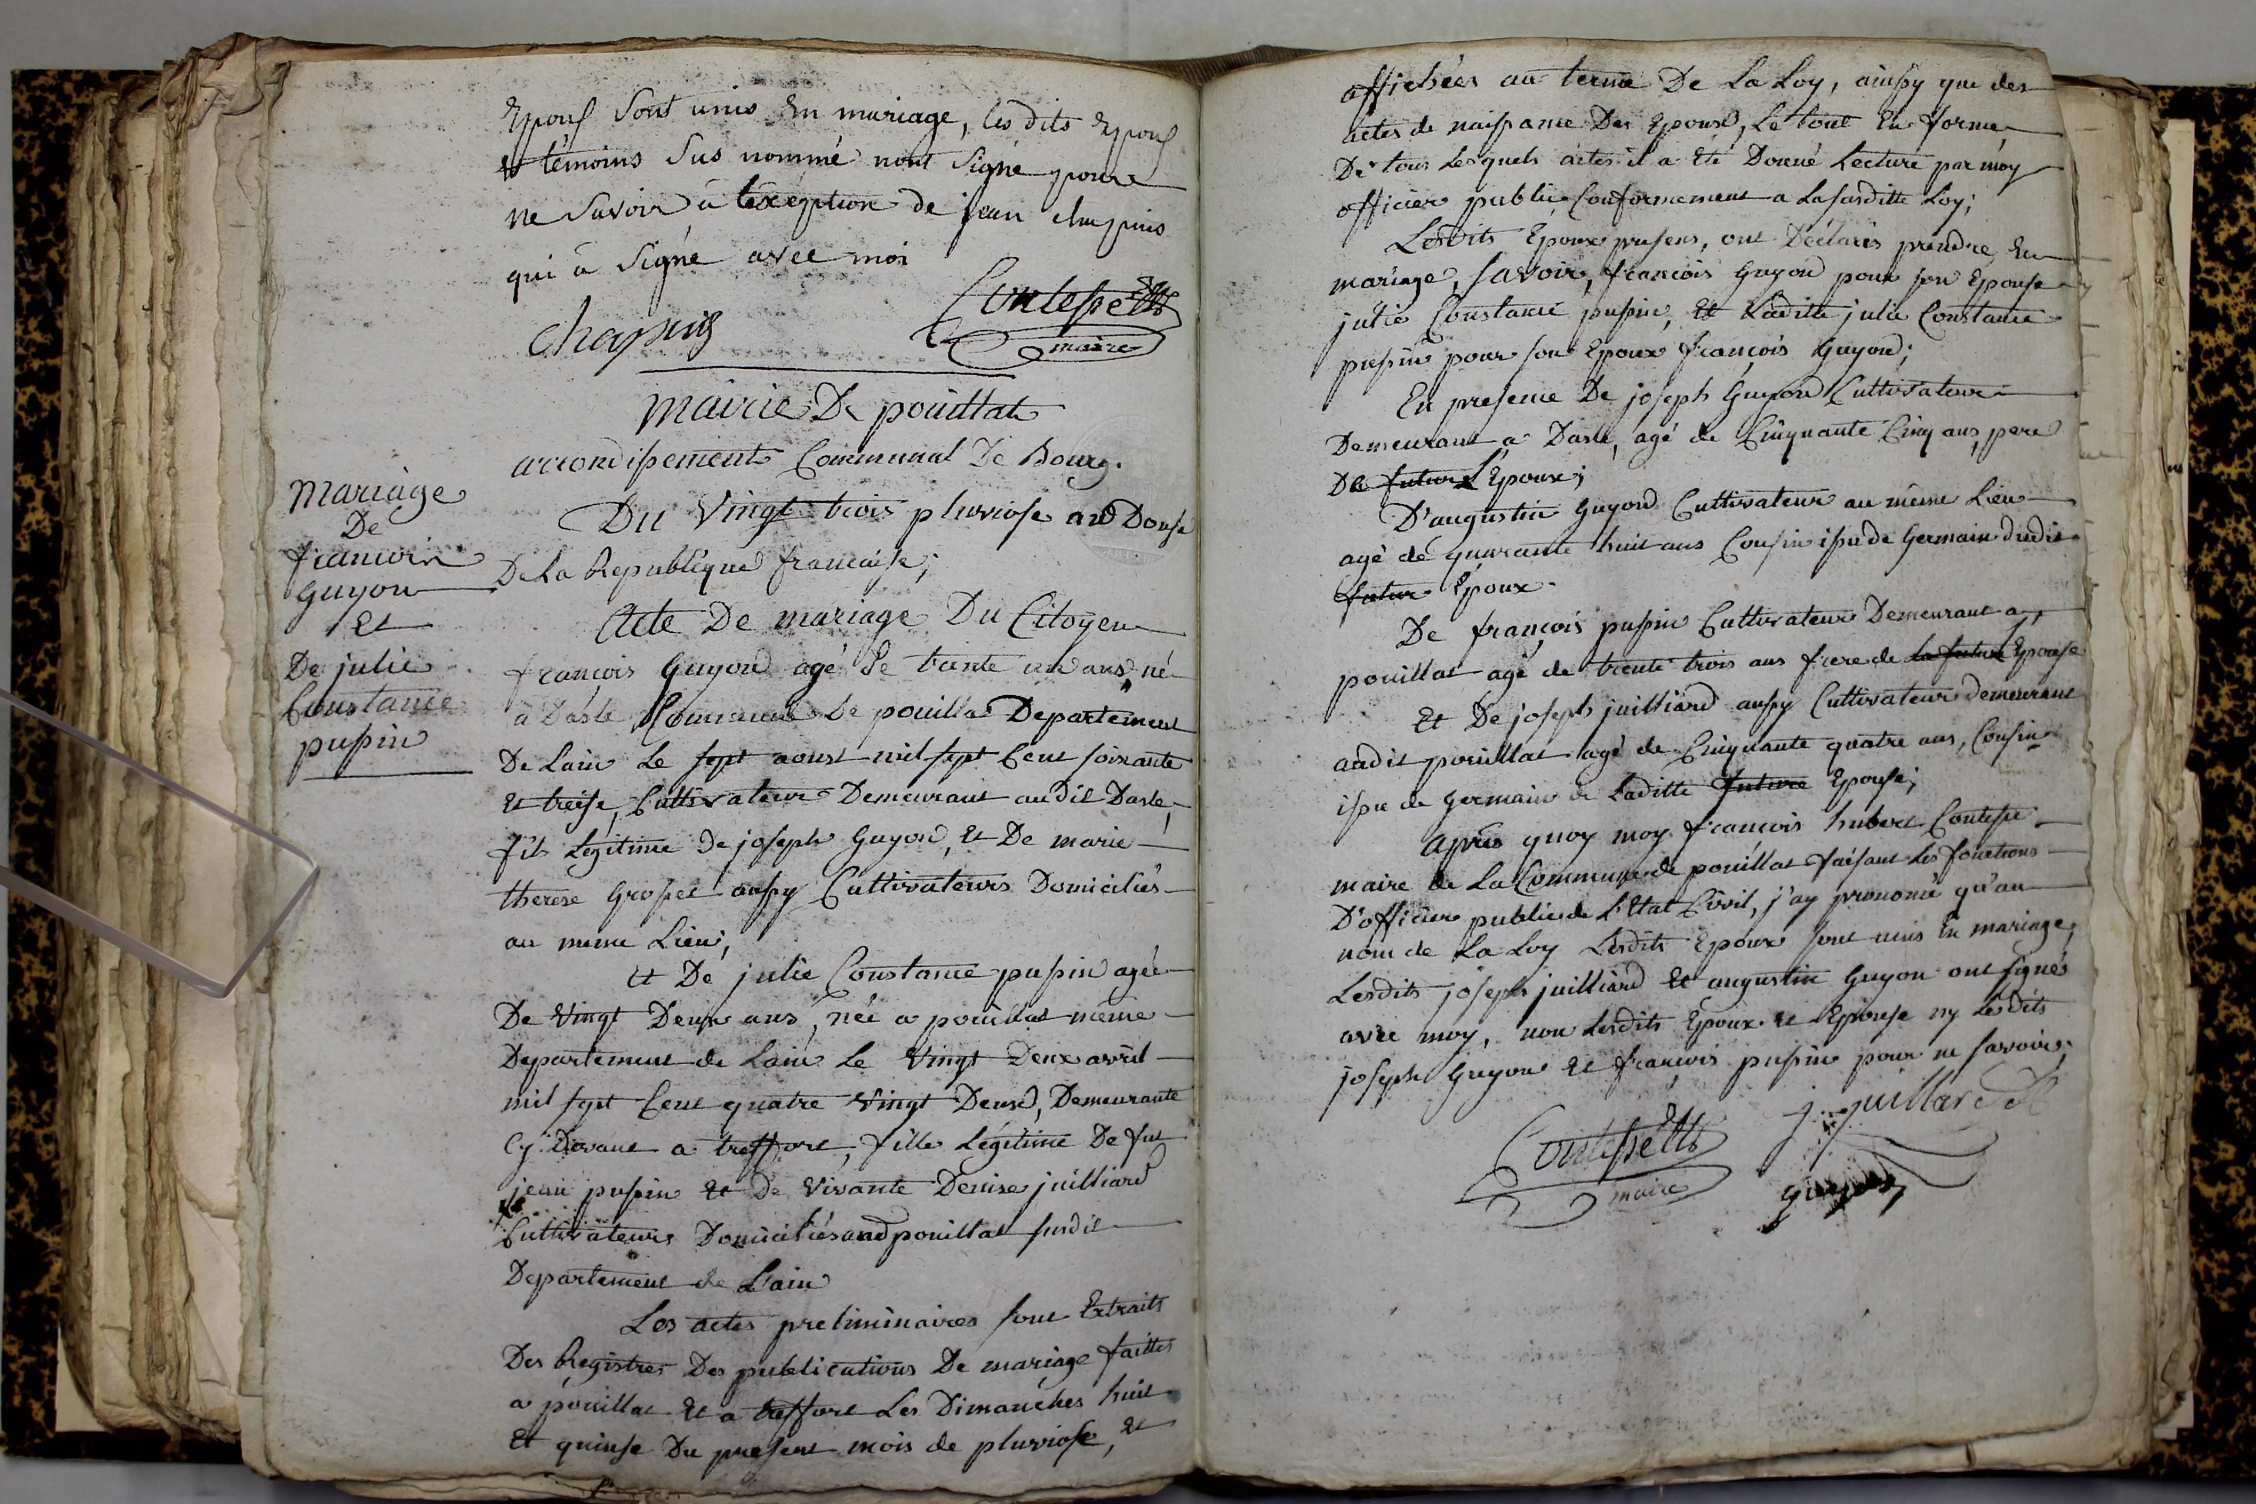 Epoux sont unis En mariage, les dits Epoux
et témoins sus nommé nont signé pour
ne savoir à léxception de jean chapuis
qui à signé avec moi
chapuis
Contesse
maire
Mairie De pouillat
arrondissement Communal De Bourg.
Mariage
De
francois
Guyon
Et
De julie
Constance
pupin
Du Vingt trois pluviose an Douse
De La Republique francaise;
Acte De mariage Du Citoyen
françois Guyon agé de trente un ans, né
à Dasle Commune de pouillat Departement
De Lain Le sept aoust mil sept Cent soixante
Et treise, Cultivateur Demeurant audit Dasle,
fils Légitime De joseph Guyon, Et De marie
therese Grosset aussy Cultivateurs Domiciliés
au meme Lieu;
Et De julie Constance pupin agée
De Vingt Deux ans, née a pouillat même
Departement de Lain Le Vingt Deux avril
mil sept Cent quatre Vingt Deux, Demeurante
Cy Devant a treffort, fille Légitime De fut
jean pupin Et De Vivante Denise juilliard
Cultivateurs Domiciliés aud pouillat susdit
Departement de L'ain
Les actes preliminaires sont Extraits
Des Registres Des publications De mariage faittes
a pouillat Et a treffort Les Dimanches huit
Et quinse Du present mois de pluviose, Et
affichées au terme De La Loy, ainssy que des
actes de naissance Des Epoux, Le tout En forme,
De tous Lesquels actes il a Eté Donné Lecture par moy
officier public Conformement a Lasusditte Loy;
Lesdits Epoux presens, ont Déclarés prendre En
mariage, savoir, francois Guyon pour son Epouse
julie Constance pupin, Et Laditte julie Constance
pupin pour son Epoux françois Guyon;
En presence De joseph Guyon Cultivateur
Demeurant a Dasle, agé de Cinquante Cinq ans, pere
De futur L'Epoux;
D'augustin Guyon Cultivateur au même Lieu
agé de quarante huit ans Cousin issu de Germain dudit
futur Epoux.
De françois pupin Cultivateur Demeurant a
pouillat agé de trente trois ans frere de La future L'Epouse
Et De joseph juilliard aussy Cultivateur demeurant
audit pouillat agé de Cinquante quatre ans, Cousin
issu de germain de Laditte future Epouse;
Après quoy moy francois hubert Contesse
maire de La Commune de pouillat faisant Les fonctions
D'officier public de L'Etat Civil, j'ay prononcé qu'au
nom de La Loy Lesdits Epoux sont unis En mariage;
Lesdits joseph juilliard Et augustin Guyon ont signés
avec moy, non Lesdits Epoux et Epouse ny Lesdits
joseph Guyon Et francois pupin pour ne savoir;
Contesse
maire
j. juillard
guyon